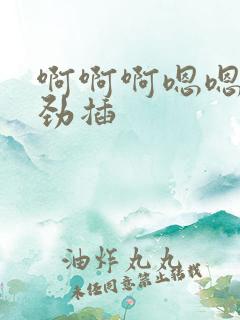 啊啊啊嗯嗯
劲插
油炸丸丸
未经同意禁止转载